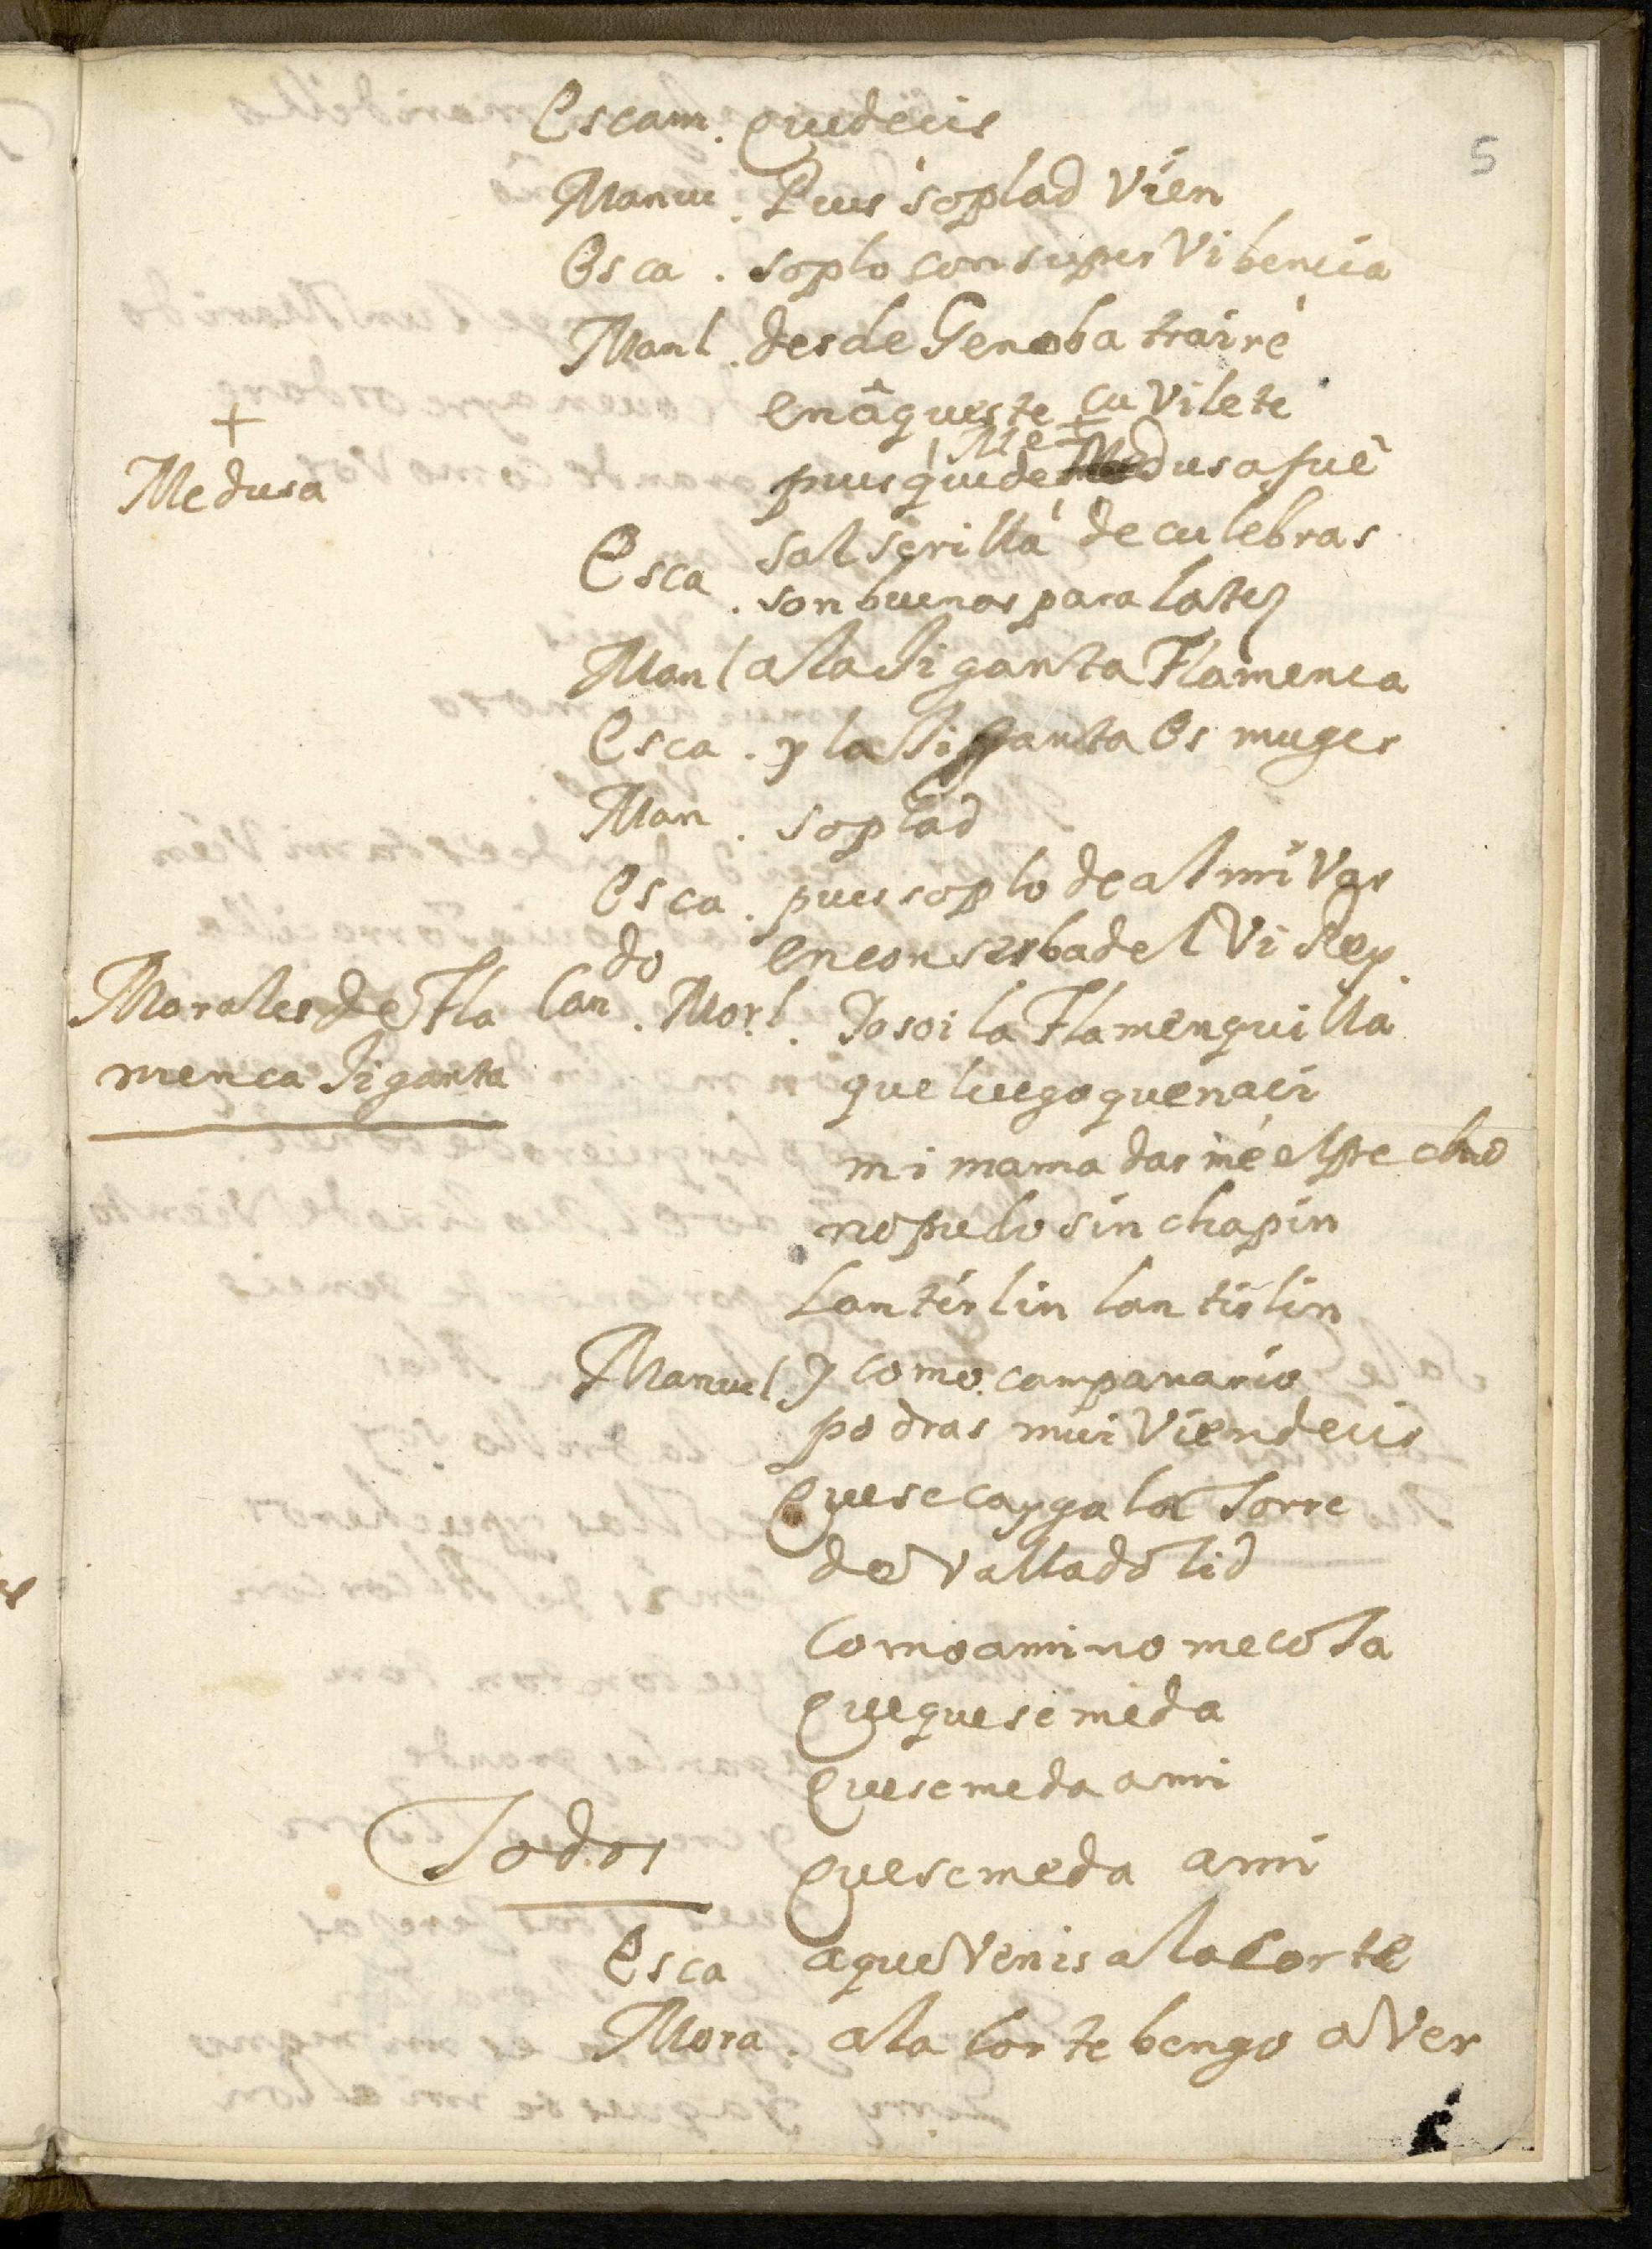 5
Escam. quedecis
Manue. Pues soplad Vien
Esca. soplo con super Vibencia
Manl. desde Genoba traire
en aqueste cuVilete
+
Me
Medusa
pues quede Medusa fuê
salserilla de culebras
Esca. son buenas para la tez
Manl a la Jiganta Flamenca
Esca. y la Jiganta Es muger
Man. soplad
Esca. pues soplo de almiVar
en conserba del Vi Rey
Morales de Fla
menca Jiganta
Can.do Morl. Yo soi la Flamenquilla
que luego que naci
mi mama darme el pecho
no pudo sin chapin
Lantirlin lantirlin
Manuel. y como campanario
podras mui Vien decir
Que se cayga la Torre
de Valladolid
Como a mi no me coJa
Que que se me da
Que se me da a mi
Todos
Que se me da a mi
Esca a que Venis a la Corte
Mora. a la Corte bengo a Ver